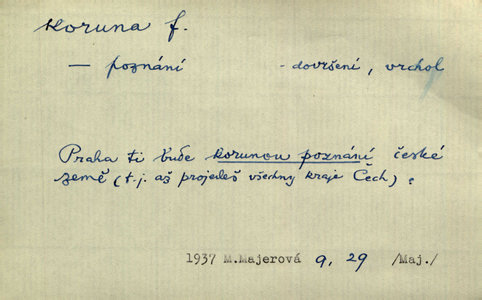 koruna f.
— poznání - dovršení, vrchol
Praha ti bude korunou poznání české
země (t.j. až projedeš všechny kraje Čech).
1937 M.Majerová 9, 29 /Maj./